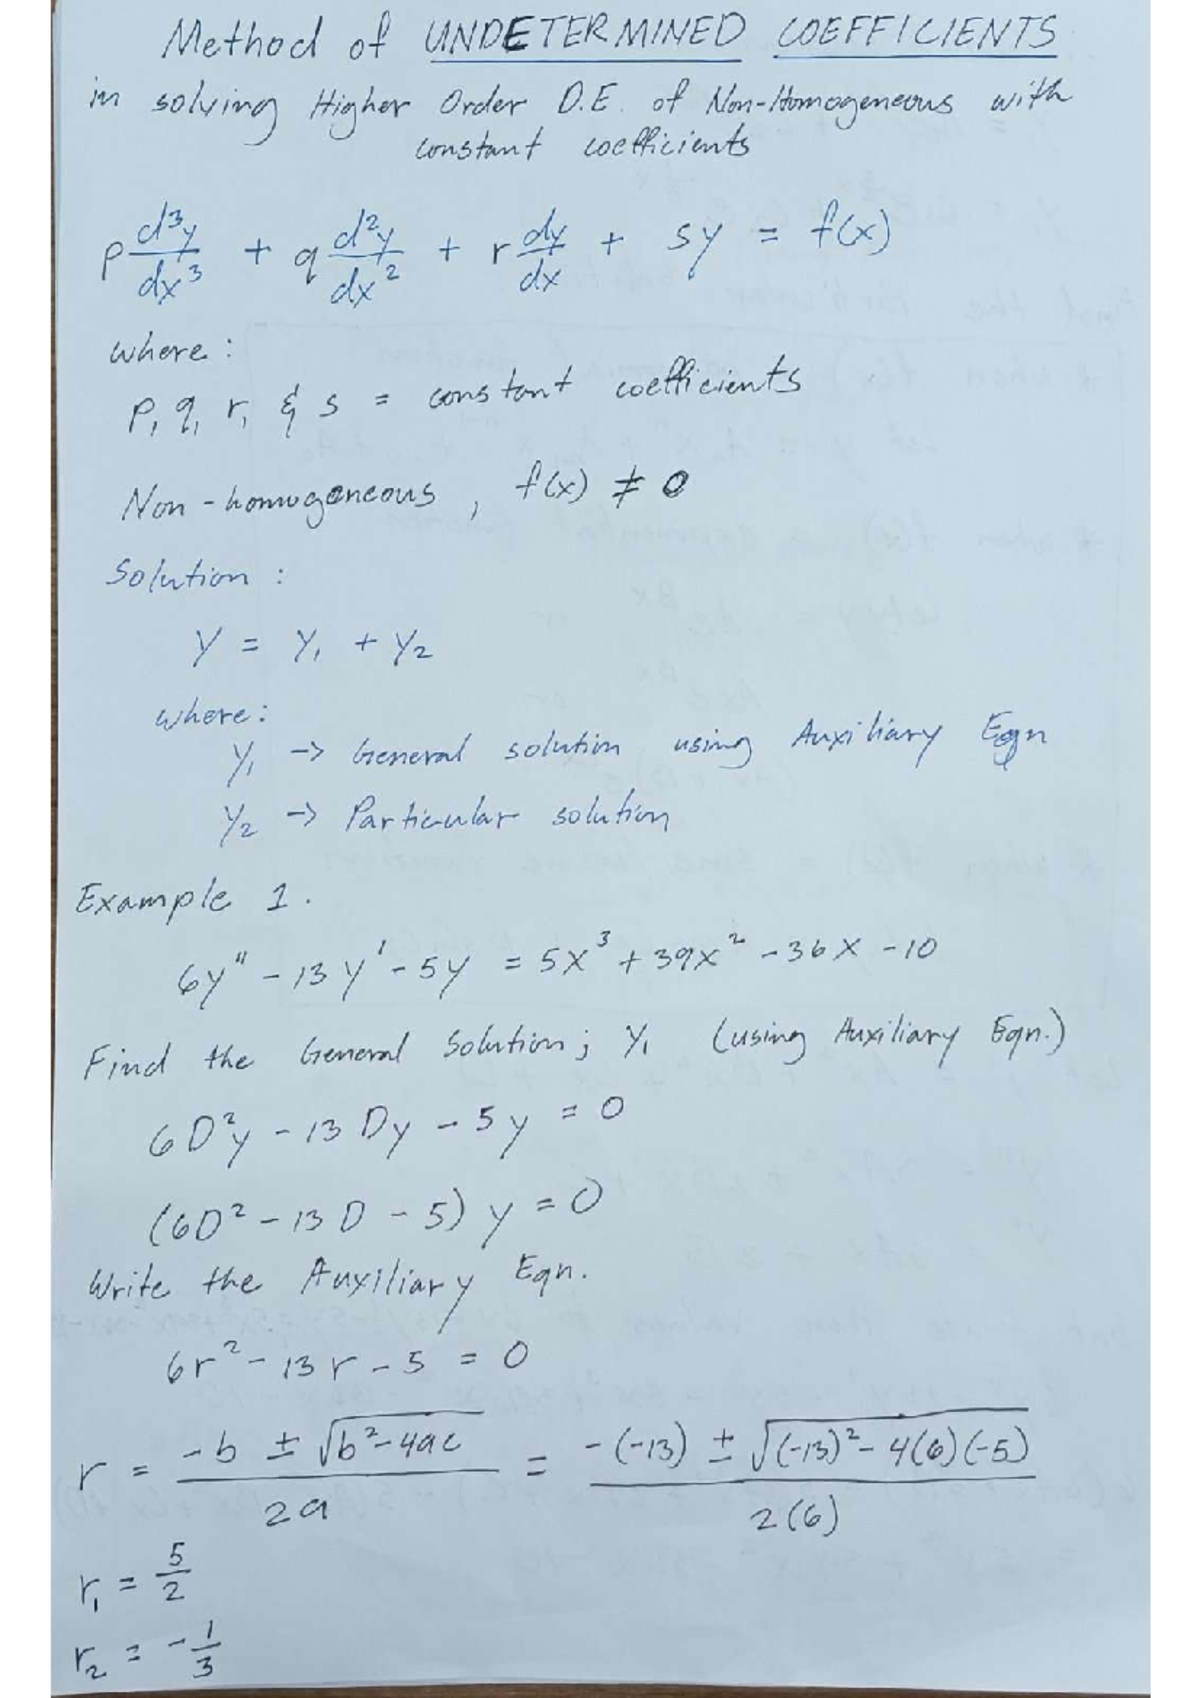 Method of UNDETERMINED COEFFICIENTS
in solving Higher Order D.E. of Non-Homogeneous with
constant coefficients
p d³y/dx³ + q d²y/dx² + r dy/dx + sy = f(x)
where:
p, q, r, & s = constant coefficients
Non-homogeneous, f(x) ≠ 0
Solution:
y = y₁ + y₂
where:
y₁ -> General solution using Auxiliary Eqn
y₂ -> Particular solution
Example 1.
6y" - 13y' - 5y = 5x³ + 39x² - 36x - 10
Find the General Solution; y₁ (using Auxiliary Eqn.)
6D²y - 13Dy - 5y = 0
(6D² - 13D - 5) y = 0
Write the Auxiliary Eqn.
6r² - 13r - 5 = 0
r = (-b ± √(b² - 4ac))/2a = (-(-13) ± √((-13)² - 4(6)(-5)))/2(6)
r₁ = 5/2
r₂ = -1/3